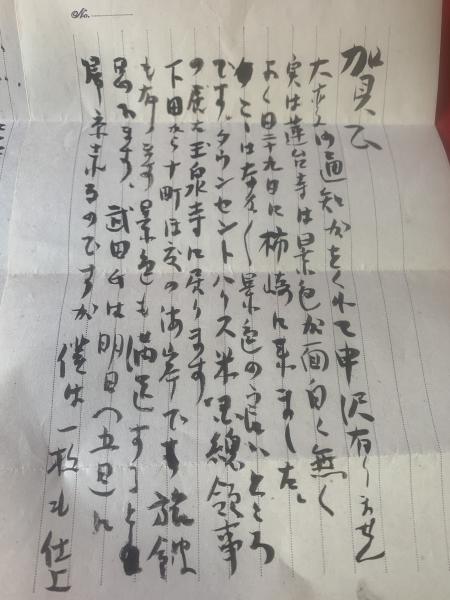 No.
賀公
大変御通知がをくれて申沢有りません
実は蓮台寺は景色が面白く無く
よく日二十九日に柿崎に来ました。
ここはなかく景色の良いところ
です。タウンセントハリス米國總領事
の居た玉泉寺に居ります
下田から十町ほどの海岸で旅館
もあります 景色も満足すること
思ひます、武田氏は明日(五日)に
帰京するのですが 僕は一枚も仕上